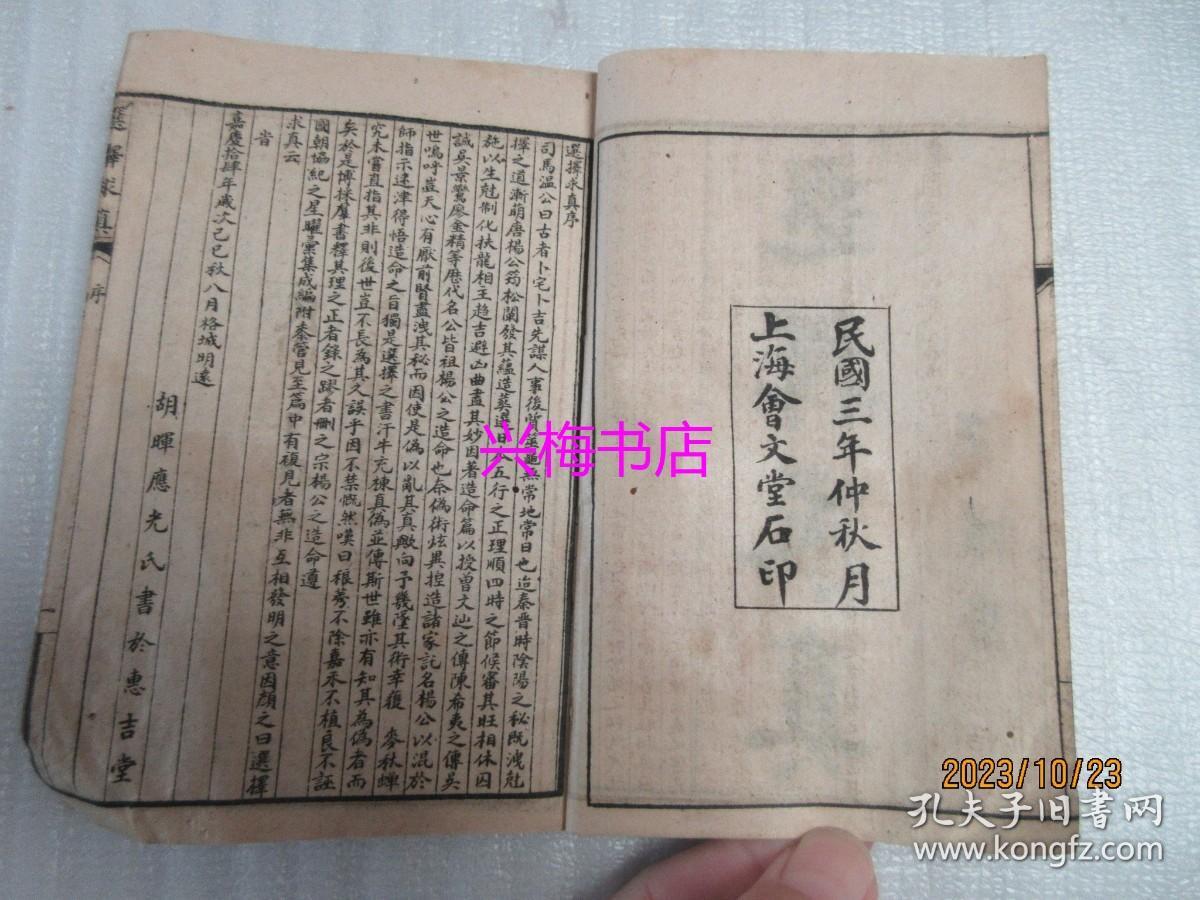 民國三年仲秋月
上海會文堂石印
選擇求真序
司馬溫公曰古者卜宅卜吉先謀人事後質筮龜無常地常日也迨秦晉時陰陽之秘既洩尅
擇之道漸萌唐楊公筠松闡發其蘊造葬選日以五行之正理順四時之節候審其旺相休囚
施以生尅制化扶龍相主趨吉避凶曲盡其妙因著造命篇以授曾文辿之傳陳希夷之傳吳
誠吳景鸞廖金精等歷代名公皆祖楊公之造命也奈偽術炫異捏造諸家託名楊公以混於
世嗚呼豈天心有厭前賢盡洩其秘而因使是偽以亂其真歟向予幾墮其術幸獲 麥林蟬
師指示迷津得悟造命之旨獨是選擇之書汗牛充棟真偽並傳斯世雖亦有知其為偽者而
究未嘗直指其非則後世豈不長為其久誤乎因不禁慨然嘆曰稂莠不除嘉禾不植良不誣
矣於是博採羣書釋其理之正者錄之跡者刪之宗楊公之造命遵
國朝協紀之星曜彙集成編附叅管見至篇中有複見者無非互相發明之意因顏之曰選擇
求真云
旹
嘉慶拾肆年歲次己巳秋八月格城明遠
胡暉應光氏書於惠吉堂
選擇求真
序
兴梅书店
2023/10/23
孔夫子旧书网
www.kongfz.com